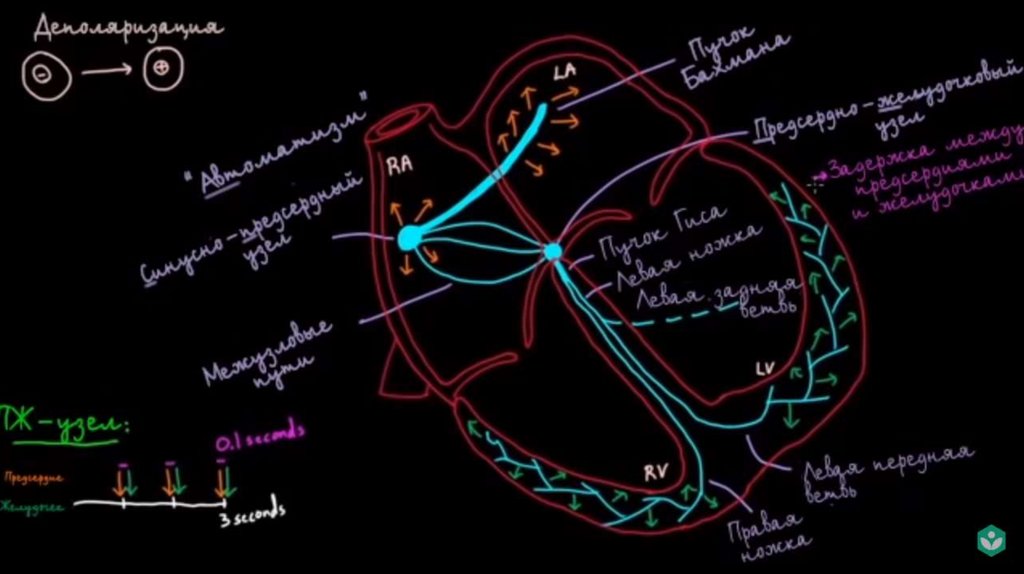 Деполяризация
Пучок
Бахмана
LA
Предсердно-желудочковый
узел
"Автоматизм"
RA
Задержка между
предсердиями
и желудочками
Синусно-предсердный
узел
Пучок Гиса
Левая ножка
Левая задняя
ветвь
Межузловые
пути
LV
ПЖ-узел:
0.1 seconds
Предсердие
Желудочек
3 seconds
RV
Левая передняя
ветвь
Правая
ножка